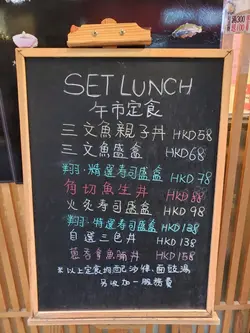 SET LUNCH
午市定食
三文魚親子丼 HKD58
三文魚盛盒 HKD68
翔·精選寿司盛盒 HKD78
角切魚生丼 HKD88
火灸寿司盛盒 HKD98
翔·特選寿司盛盒 HKD128
自選三色丼 HKD138
魚腩丼 HKD158
※以上定食均配沙律,麵豉湯
另收加一服務費